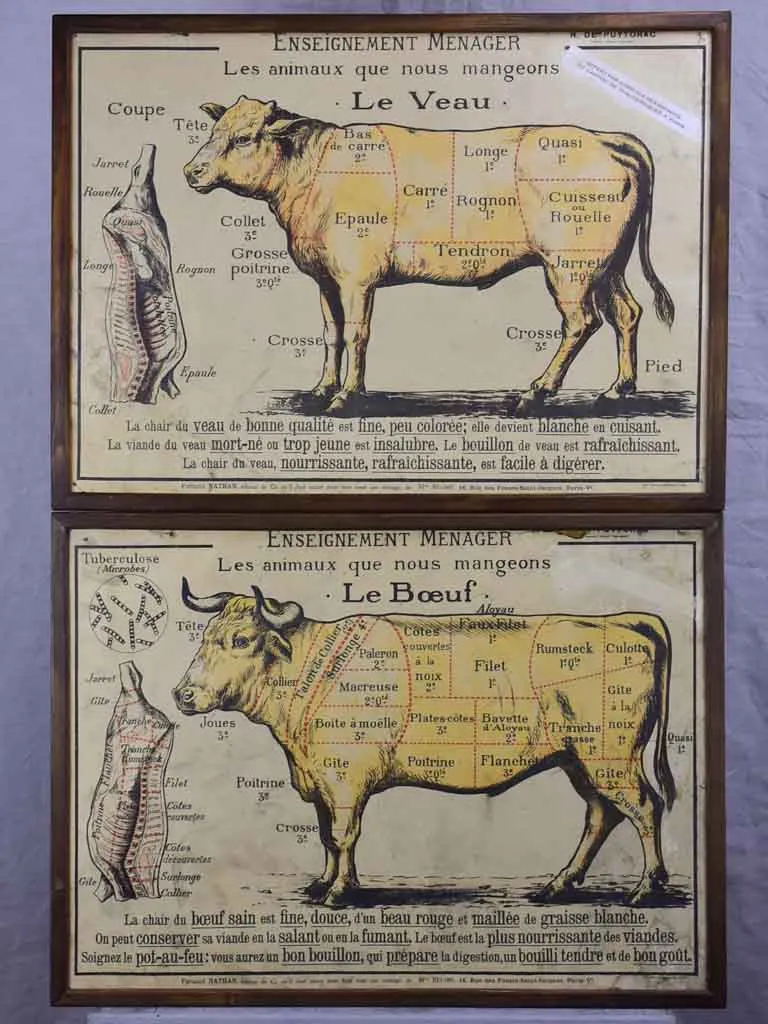 R. DE PUYTORAC
ENSEIGNEMENT MENAGER
Les animaux que nous mangeons
· Le Veau ·
Coupe
Jarret
Rouelle
Quasi
Longe
Rognon
Poitrine
Epaule
Collet
Tête
3e
Bas
de carré
2e
Longe
1e
Quasi
1e
Carré
1e
Rognon
1e
Cuisseau
ou
Rouelle
1e
Collet
3e
Epaule
2e
Grosse
poitrine
3e Qté
Tendron
2e Qté
Jarret
1e Qté
Crosse
3e
Crosse
3e
Pied
La chair du veau de bonne qualité est fine, peu colorée; elle devient blanche en cuisant.
La viande du veau mort-né ou trop jeune est insalubre. Le bouillon de veau est rafraîchissant.
La chair du veau, nourrissante, rafraîchissante, est facile à digérer.
Fernand NATHAN, 16, Rue des Fossés-Saint-Jacques, Paris-Ve
ENSEIGNEMENT MENAGER
Les animaux que nous mangeons
· Le Bœuf ·
Tuberculose
(Microbes)
Jarret
Gîte
Tranche
Culotte
Tranche
Flanchet
Filet
Poitrine
Côtes
couvertes
Côtes
découvertes
Surlonge
Gîte
Collier
Tête
3e
Aloyau
Faux Filet
1e
Collier
3e
Talon de Collier
Surlonge
Paleron
2e
Côtes
couvertes
à la
noix
2e
Filet
1e
Rumsteck
1e Qté
Culotte
1e
Macreuse
2e Qté
Gîte
à la
noix
1e
Joues
3e
Boîte à moëlle
3e
Plates-côtes
3e
Bavette
d'Aloyau
2e
Tranche
grasse
1e
Quasi
1e
Gîte
3e
Poitrine
3e Qté
Flanchet
3e
Gîte
3e
Poitrine
3e
Crosse
3e
Crosse
3e
La chair du bœuf sain est fine, douce, d'un beau rouge et maillée de graisse blanche.
On peut conserver sa viande en la salant ou en la fumant. Le bœuf est la plus nourrissante des viandes.
Soignez le pot-au-feu: vous aurez un bon bouillon, qui prépare la digestion, un bouilli tendre et de bon goût.
Fernand NATHAN, 16, Rue des Fossés-Saint-Jacques, Paris-Ve